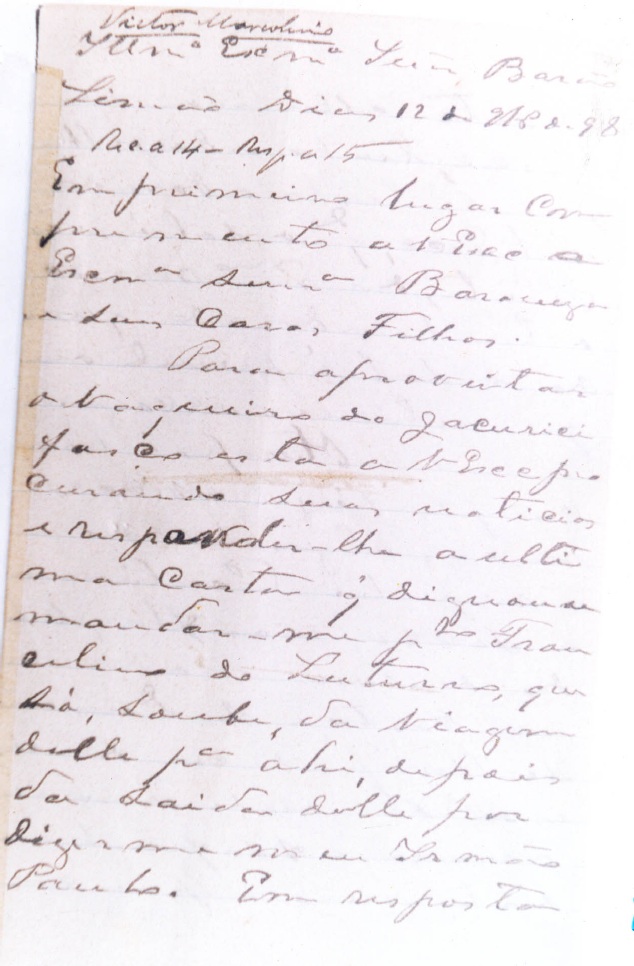 Victor Marcolino
Illmº Exmº Senr. Barão
Simão Dias 12 de 9bro de 98
Rec. a 14 – Resp. a 15
Em primeiro lugar Com
primento a V Exc e
Excmª Senrª Baroneza
e seus Caros Filhos.
Para aproveitar
o Vaqueiro do Jacurici
fasço esta a V Exc pro
curando suas noticias
e responder-lhe a ulti
ma Carta q̃ dignou-se
mandar-me pelo Fran
culino do
só, soube, da Viagem
delle pª ahi, depois
da saida delle por
dizer me meu Irmão
Paulo. Em resposta